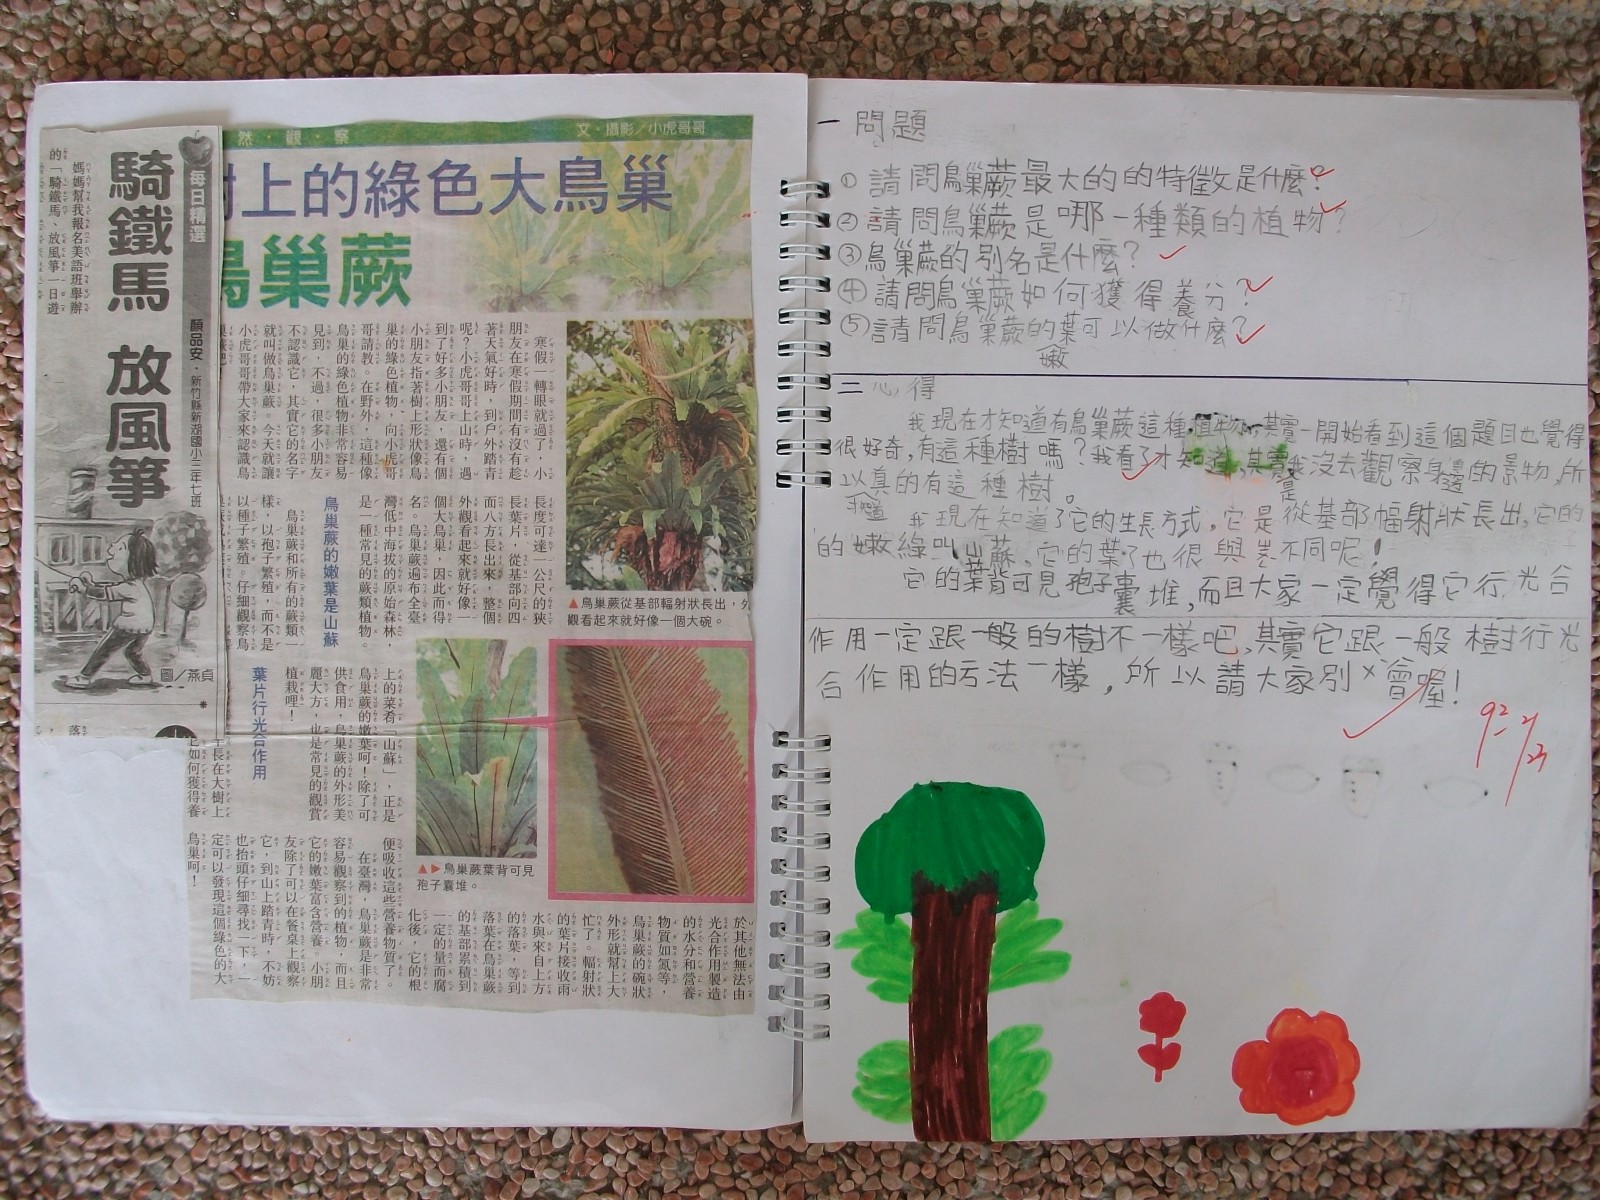 每日精選
騎鐵馬 放風箏
顏品安・新竹縣新湖國小三年七班
媽媽幫我報名美語班舉辦
的「騎鐵馬、放風箏一日遊
圖／燕貞
然・觀・察
文・攝影／小虎哥哥
樹上的綠色大鳥巢
鳥巢蕨
寒假一轉眼就過了，小
朋友在寒假期間有沒有趁
著天氣好時，到戶外踏青
呢？小虎哥哥上山時，遇
到了好多小朋友，還有個
小朋友指著樹上形狀像鳥
巢的綠色植物，向小虎哥
哥請教。在野外，這種像
鳥巢的綠色植物非常容易
見到，不過，很多小朋友
不認識它，其實它的名字
就叫做鳥巢蕨。今天就讓
小虎哥哥帶大家來認識鳥
▲鳥巢蕨從基部輻射狀長出，外
觀看起來就好像一個大碗。
長度可達一公尺的狹
長葉片，從基部向四
面八方長出來，整個
外觀看起來就好像一
個大鳥巢，因此而得
名。鳥巢蕨遍布全臺
灣低中海拔的原始森林，
是一種常見的蕨類植物。
鳥巢蕨的嫩葉是山蘇
鳥巢蕨和所有的蕨類一
樣，以孢子繁殖，而不是
以種子繁殖。仔細觀察鳥
上的菜肴「山蘇」，正是
鳥巢蕨的嫩葉呵！除了可
供食用，鳥巢蕨的外形美
麗大方，也是常見的觀賞
植栽哩！
葉片行光合作用
生長在大樹上
如何獲得養
▲▶鳥巢蕨葉背可見
孢子囊堆。
於其他無法由
光合作用製造
的水分和營養
物質如氮等，
鳥巢蕨的碗狀
外形就幫上大
忙了。輻射狀
的葉片接收雨
水與來自上方
的落葉，等到
落葉在鳥巢蕨
的基部累積到
一定的量而腐
化後，它的根
便吸收這些營養物質了。
在臺灣，鳥巢蕨是非常
容易觀察到的植物，而且
它的嫩葉富含營養。小朋
友除了可以在餐桌上觀察
它，到山上踏青時，不妨
也抬頭仔細尋找一下，一
定可以發現這個綠色的大
鳥巢呵！
一 問題
①請問鳥巢蕨最大的的特徵是什麼？
②請問鳥巢蕨是哪一種類的植物？
③鳥巢蕨的別名是什麼？
④請問鳥巢蕨如何獲得養分？
⑤請問鳥巢蕨的嫩葉可以做什麼？
二 心得
我現在才知道有鳥巢蕨這種植物，其實一開始看到這個題目也覺得
很好奇，有這種樹嗎？我看了才知道，其實是我沒去觀察身邊的景物，所
以真的有這種樹。
我現在知道了它的生長方式，它是從基部幅射狀長出，它的
的嫩綠叫山蘇，它的葉子也很與眾不同呢！
它的葉背可見孢子囊堆，而且大家一定覺得它行光合
作用一定跟一般的樹不一樣吧，其實它跟一般樹行光
合作用的方法一樣，所以請大家別×會喔！
92
2/23